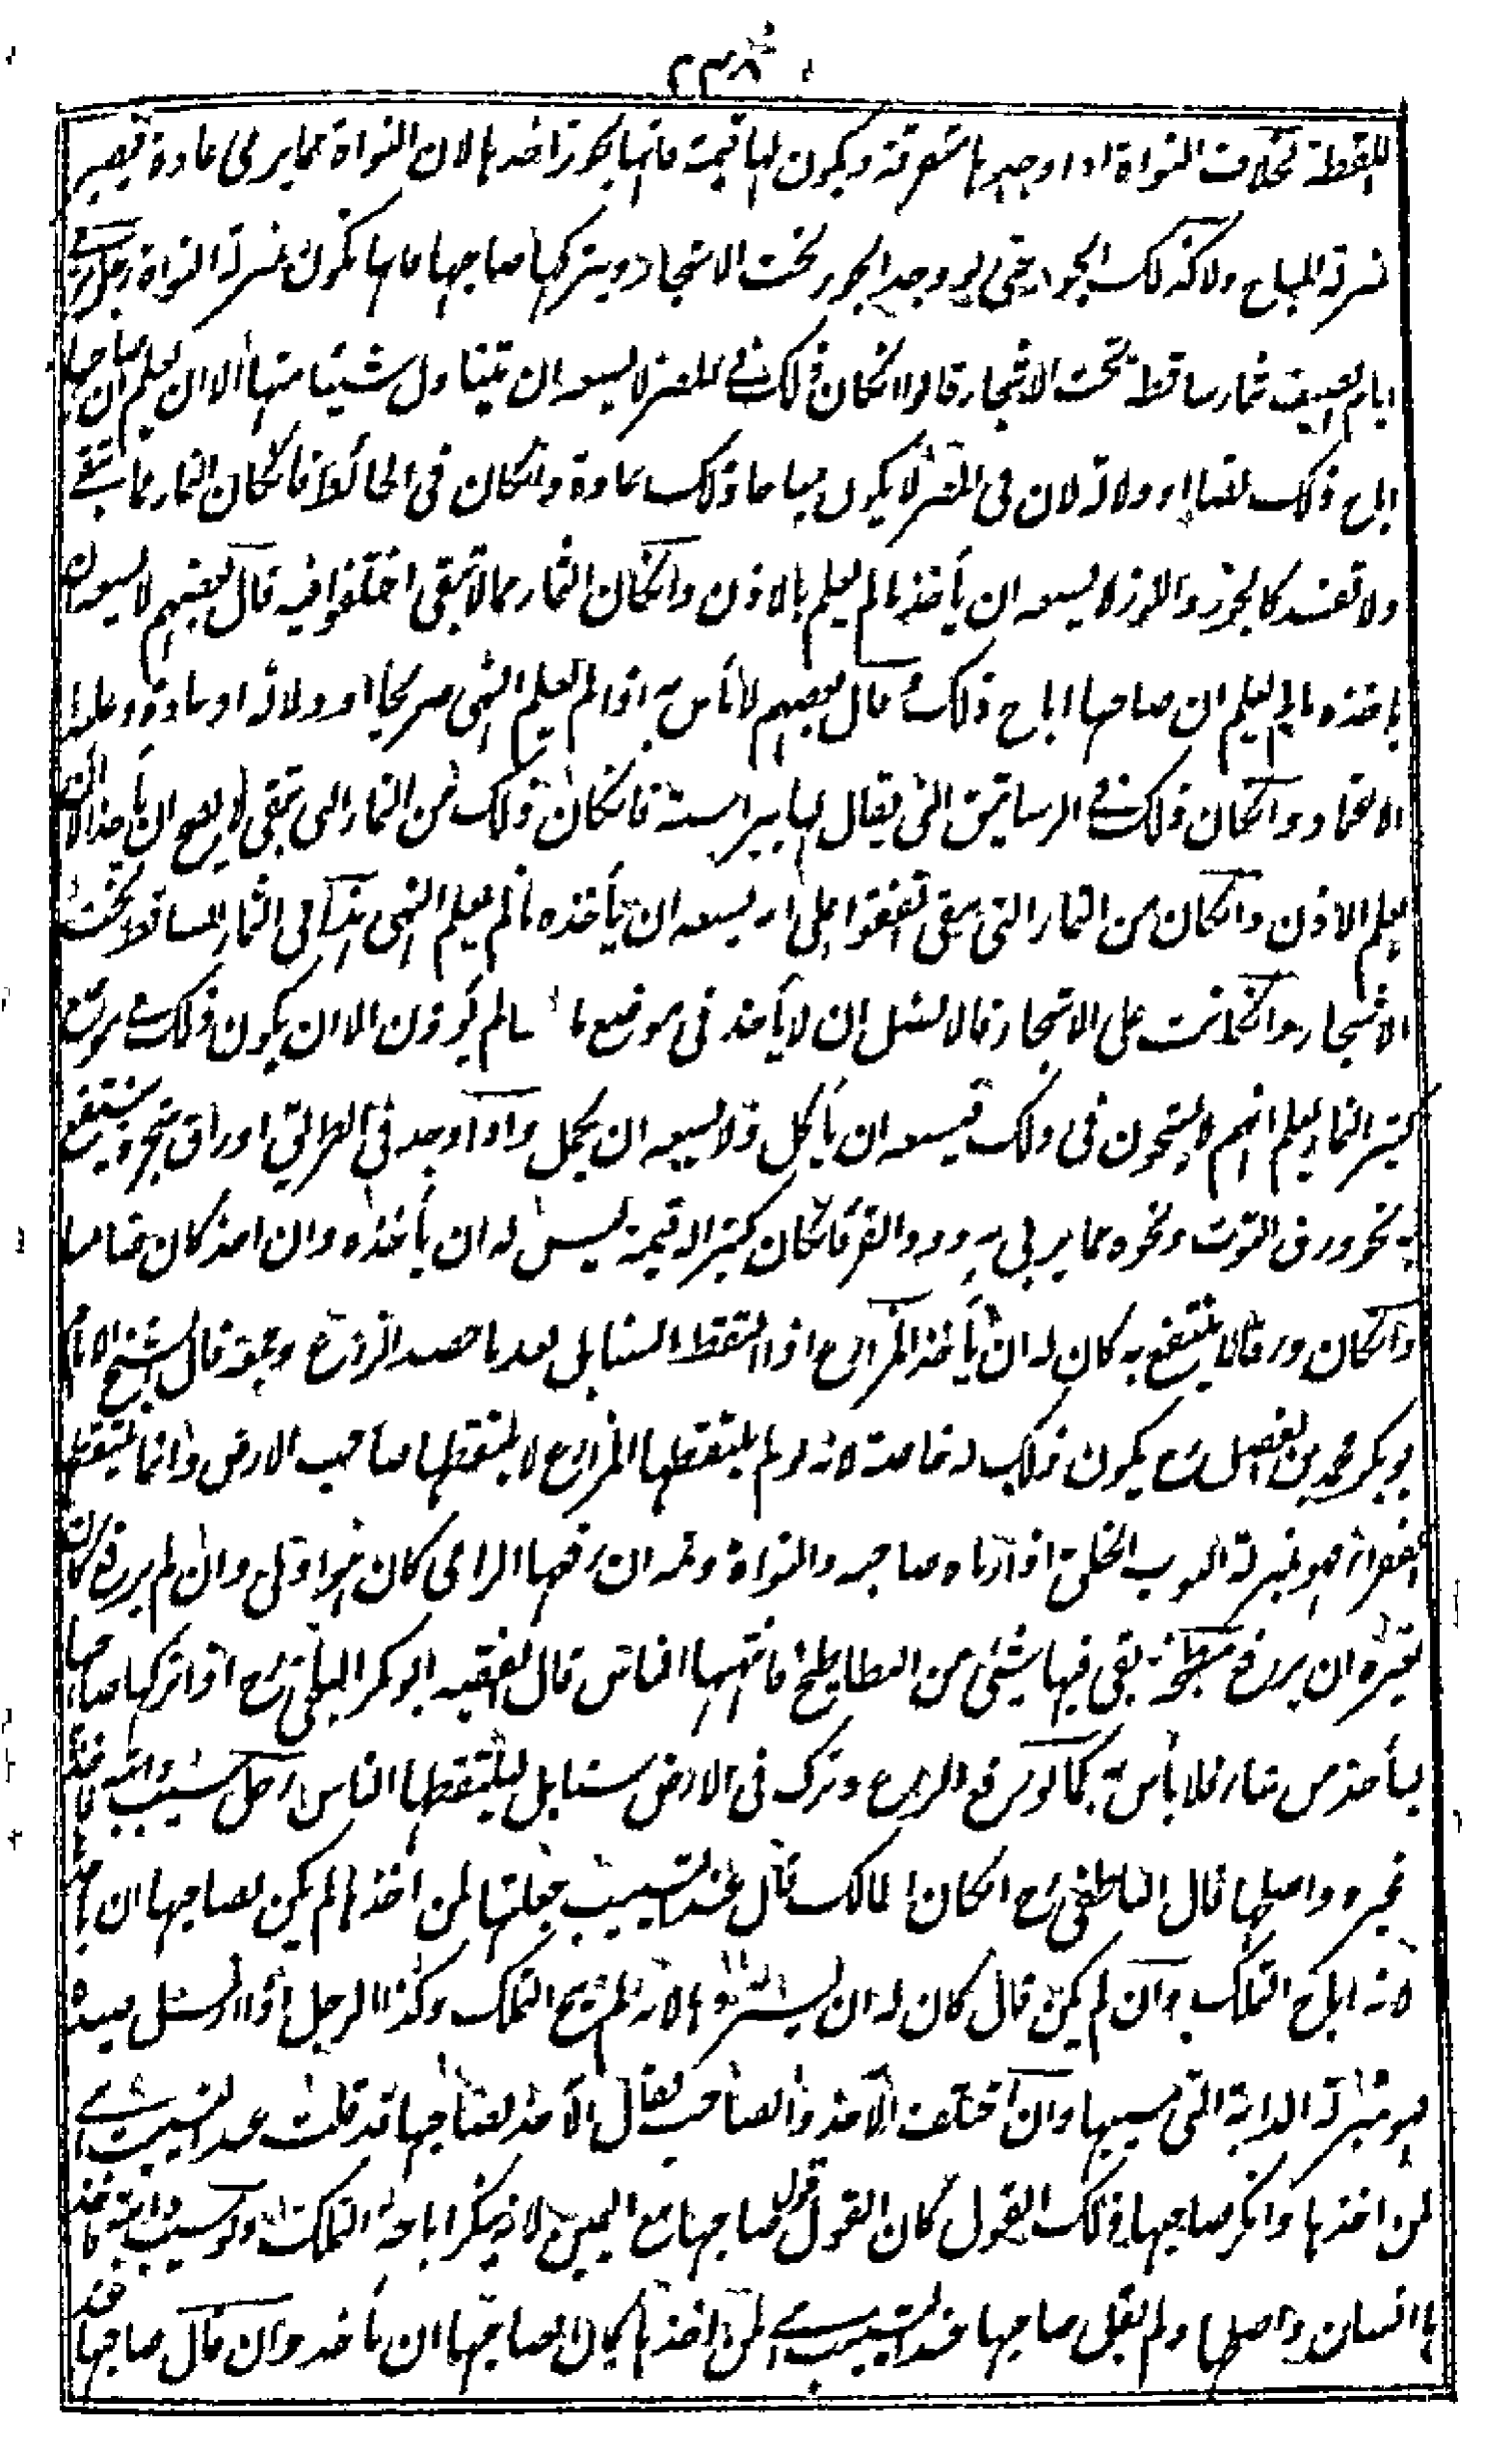 ٢٣٨
اللقطة بخلاف النواة اذا وجدها متفرقة ويكون لها قيمة فانها يجوز اخذها لان النواة مما يرمى عادة فيصير
بمنزلة المباح ولا كذلك الجوز حتى لو وجد الجوز تحت الاشجار ويتركها صاحبها فانها تكون بمنزلة النواة رجل مر في
ايام الصيف بثمار ساقطة تحت الاشجار قالوا انكان ذلك في المصر لا يسعه ان يتناول شيئا منها الا ان يعلم ان صاحبها
اباح ذلك نصا او دلالة لان في المصر لا يكون مباحا ذلك عادة وانكان في الحائط فانكان الثمار مما يبقى
ولا تفسد كالجوز واللوز لا يسعه ان يأخذ مالم يعلم بالاذن وانكان الثمار مما لا تبقى اختلفوا فيه قال بعضهم لا يسعه ان
ياخذه مالم يعلم ان صاحبها اباح ذلك و قال بعضهم لا بأس به اذا لم يعلم النهى صريحا او دلالة او عادة وعليه
الاعتماد وانكان ذلك في الرساتيق التي يقال لها بيراسته فانكان ذلك من الثمار التي تبقى لا يسع ان يأخذ الا ان
يعلم الاذن وانكان من الثمار التي تبقى اتفقوا على انه يسعه ان يأخذه مالم يعلم النهى هذا في الثمار الساقطة تحت
الاشجار وانكانت على الاشجار فالافضل ان لا يأخذ في موضع ما مالم يؤذن الا ان يكون ذلك في موضع
كثير الثمار يعلم انهم لا يشحون في ذلك فيسعه ان يأكل ولا يسعه ان يحمل واذا وجد في الطريق اوراق شجر وينتفع
به نحو ورق التوت ونحوه مما يربى به دود القز فانكان كثيرا له قيمة ليس له ان يأخذه وان اخذ كان ضامنا
وانكان ورقا لا ينتفع به كان له ان يأخذ المزارع اذا التقط السنابل بعد ما حصد الزرع وجمعه قال الشيخ الامام
ابو بكر محمد بن الفضل رح يكون ذلك له خاصة لانه لو لم يلتقطها المزارع لا يلتقطها صاحب الارض وانما يلتقطها
الفقراء فهو بمنزلة الثوب الخلق اذا رماه صاحبه والنواة وثمه ان رفعها الرامى كان هو اولى وان لم يرفع كان
لغيره ان يرفع مبطخة بقى فيها شئ من البطاطيخ فانتهبها الناس قال الفقيه ابو بكر البلخي رح اذا تركها صاحبها
ليأخذ من شاء فلا بأس به كما لو رفع الزرع وترك في الارض سنابل ليلتقطها الناس رجل سيب دابته فاخذها
غيره واصلحها قال الناطفى رح انكان المالك قال عند التسييب جعلتها لمن اخذها لم يكن لصاحبها ان يأخذها
لانه اباح التملك وان لم يكن قال كان له ان يستردها لانه لم يبح التملك وكذا الرجل اذا ارسل صيده
فهو بمنزلة الدابة التي سيبها وان اختلف الآخذ والصاحب فقال الآخذ لصاحبها قد قلت عند التسييب هي
لمن اخذها وانكر صاحبها ذلك القول كان القول قول صاحبها مع اليمين لانه ينكر اباحة التملك ولو سيب دابته فاخذ
ها انسان واصلحها ولم يقل صاحبها عند التسييب هي لمن اخذها كان لصاحبها ان يأخذ وان قال صاحبها عند